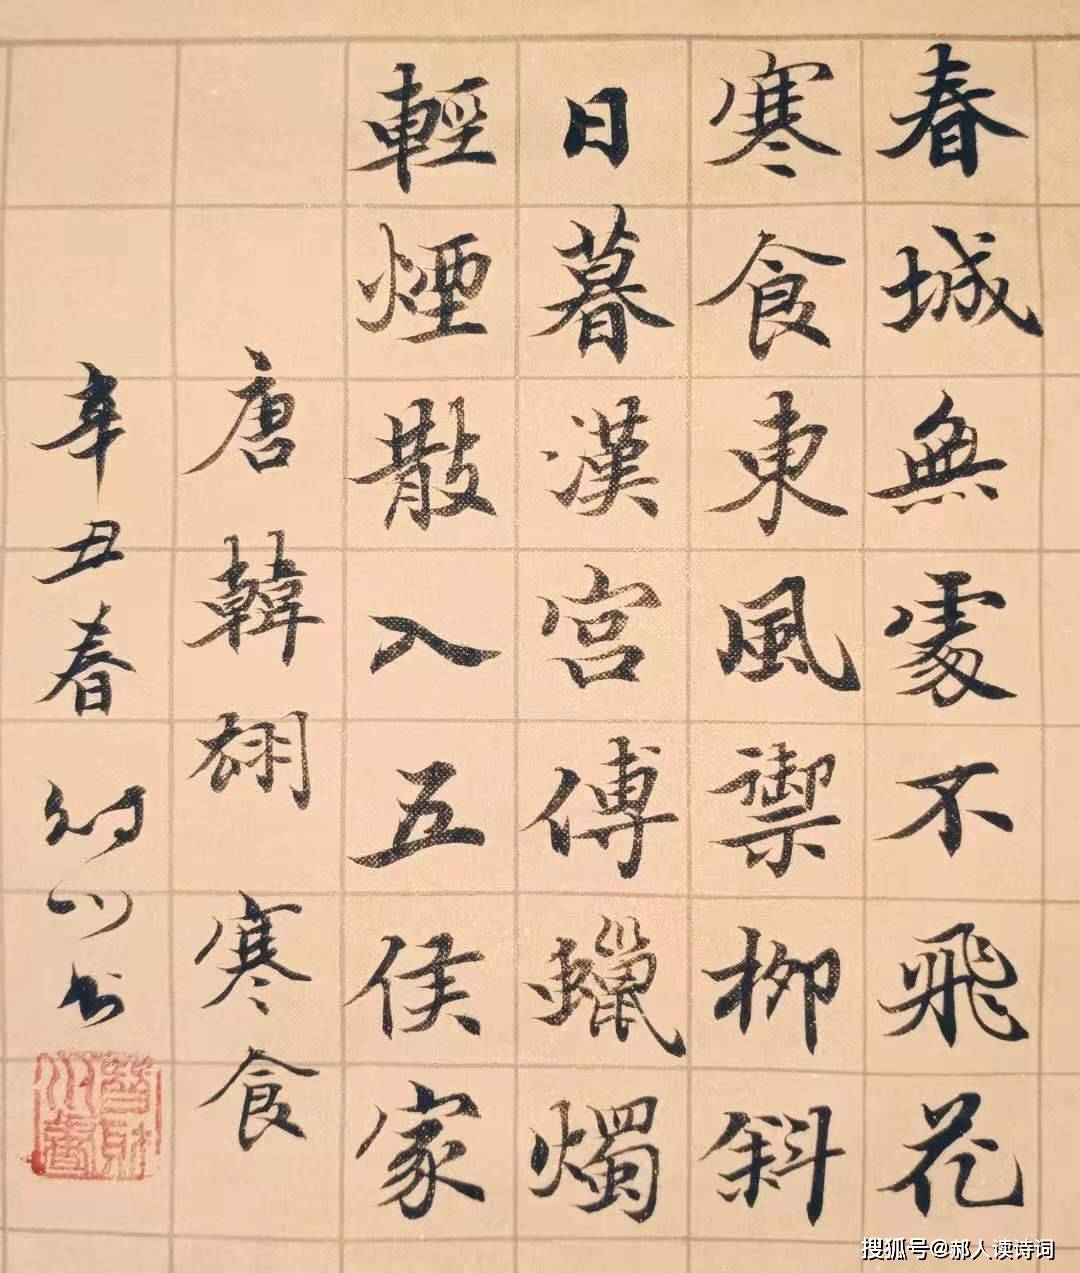 春城無處不飛花
寒食東風禦柳斜
日暮漢宮傅蠟燭
輕煙散入五侯家
唐韓翃 寒食
辛丑春 川书
搜狐号@郝人读诗词